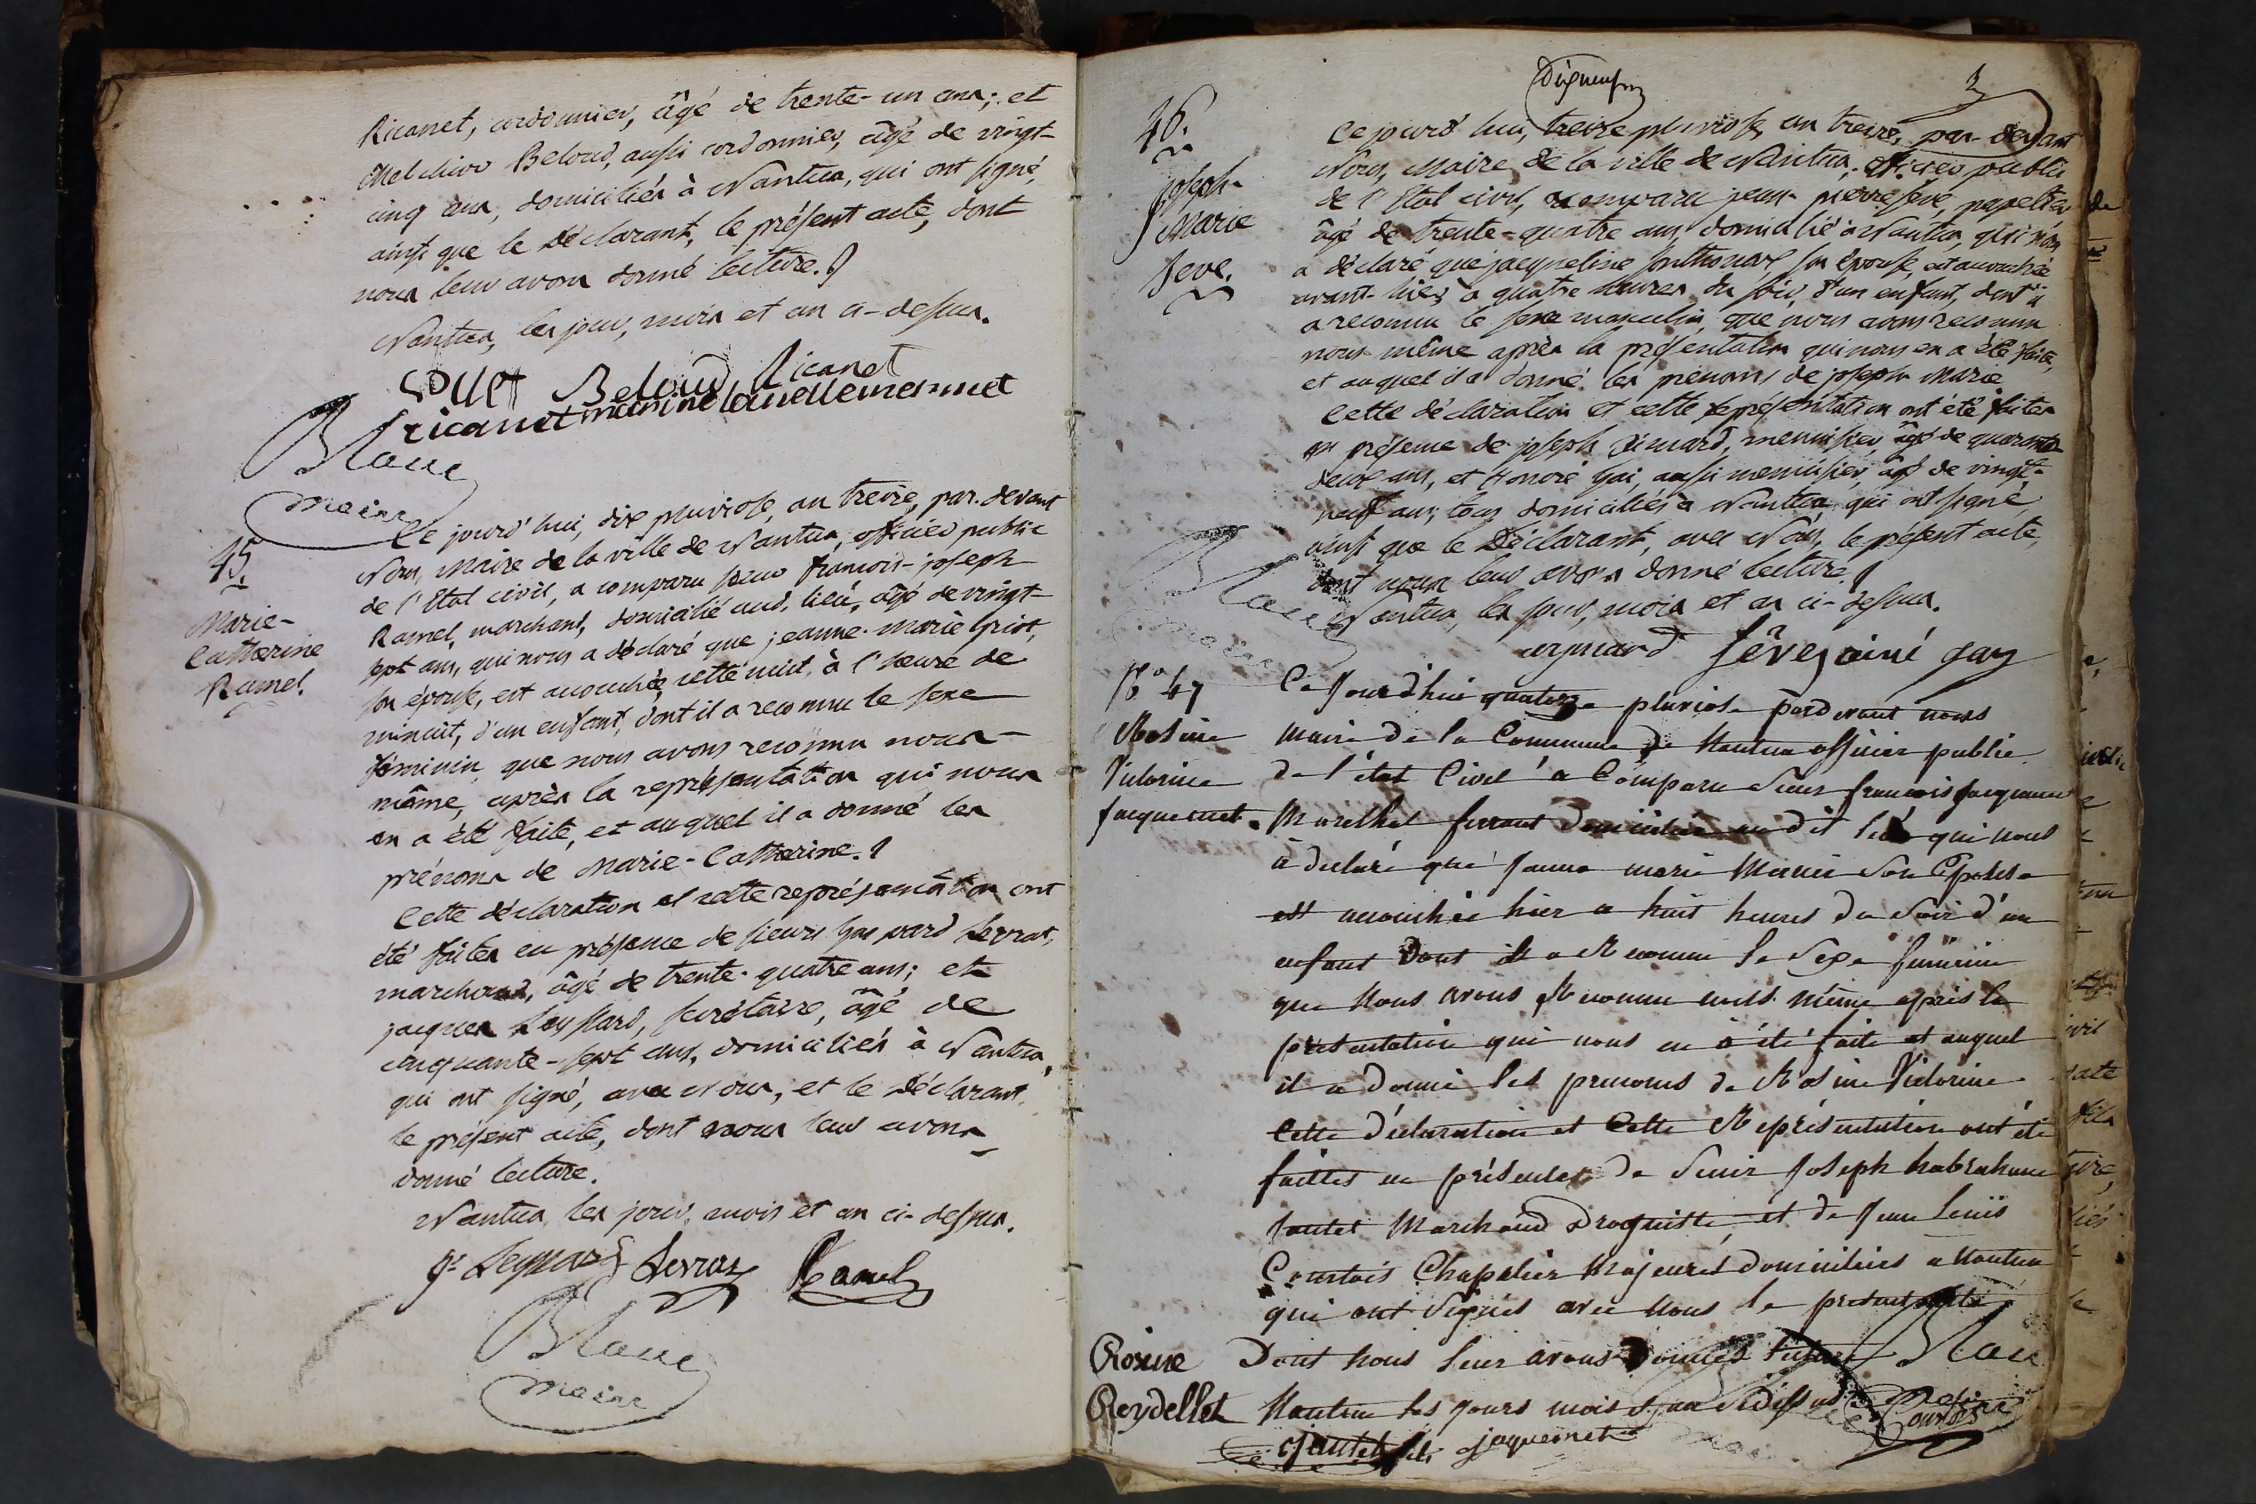 Ricanet, cordonnier, âgé de trente-un ans; et
Melchior Beloud, aussi cordonnier, âgé de vingt-
cinq ans, domiciliés à Nantua, qui ont signé,
ainsi que le Déclarant, le présent acte, dont
nous leur avons donné lecture.
Nantua, les jour, mois et an ci-dessus.
Beloud Ricanet
ricanet
Blanc
maire
45.
Marie-
Catherine
Ramel.
Ce jourd'hui, dix pluviose, an treize, par-devant
Nous, Maire de la ville de Nantua, officier public
de l'Etat civil, a comparu sieur françois-joseph
Ramel, marchant, domicilié aud. lieu, âgé de vingt-
sept ans, qui nous a déclaré que jeanne-marie Griot,
son épouse, est accouchée cette nuit, à l'heure de
minuit, d'un enfant, dont il a reconnu le sexe
féminin, que nous avons reconnu nous-
même, après la représentation qui nous
en a été faite, et auquel il a donné les
prénoms de Marie-Catherine.
Cette déclaration et cette représentation ont
été faites en présence de sieurs Gaspard Levrat,
marchand, âgé de trente-quatre ans; et
jacques Leyssard, secrétaire, âgé de
cinquante-sept ans, domiciliés à Nantua,
qui ont signé, avec Nous, et le Déclarant,
le présent acte, dont nous leur avons
donné lecture.
Nantua, les jour, mois et an ci-dessus.
Leyssard Levraz Ramel
Blanc
maire
3
46.
joseph-
Marie
Seve.
Ce jourd'hui, treize pluviose, an treize, par-devant
Nous, Maire de la ville de Nantua, officier public
de l'Etat civil, a comparu jean-pierre Seve, papetier
âgé de trente-quatre ans, domicilié à Nantua, qui nous
a déclaré que jacqueline Sonthonax, son épouse, est accouchée
avant-hier, à quatre heures du soir, d'un enfant, dont il
a reconnu le sexe masculin, que nous avons reconnu
nous-même après la présentation qui nous en a été faite,
et auquel il a donné les prénoms de joseph-Marie
Cette déclaration et cette représentation ont été faites
en présence de joseph menuisier, âgé de quarante
deux ans, et Honoré Gai, aussi menuisier, âgé de vingt-
neuf ans, tous domiciliés à Nantua, qui ont signé,
ainsi que le Déclarant, avec Nous, le présent acte,
dont nous leur avons donné lecture.
Nantua, les jour, mois et an ci-dessus.
Blanc
maire
Sêve ainé gay
N° 47
Rosine
Victorine
Jacquemet.
Ce Jourd'hui quatorze pluviose pardevant nous
maire de la Commune de Nantua officier public
de l'état Civil a Comparu Sieur francois Jacquemet
Marechal ferrant Domicilié au dit lieu qui nous
à déclaré que Jeanne marie Mercier Son Epouse
est accouchée hier a huit heures du Soir d'un
enfant Dont il a Reconnu le Sexe feminin
que Nous avons Reconnu nous même après la
présentation qui nous en à été faite et auquel
il a Donné les prenoms de Rosine Victorine
Cette Déclaration et Cette Représentation ont été
faittes en présences de Sieur Joseph habraham
Jantet Marchand Droguiste, et de Jean Louis
Courtois Chapelier Majeures Domiciliés a Nantua
qui ont Signés avec Nous le present acte
Dont Nous leur avons Données lecture
Nantua les jours mois et an
Rosine
Reydellet
Blanc
maire
Courtois
Jantet fils jaquemet